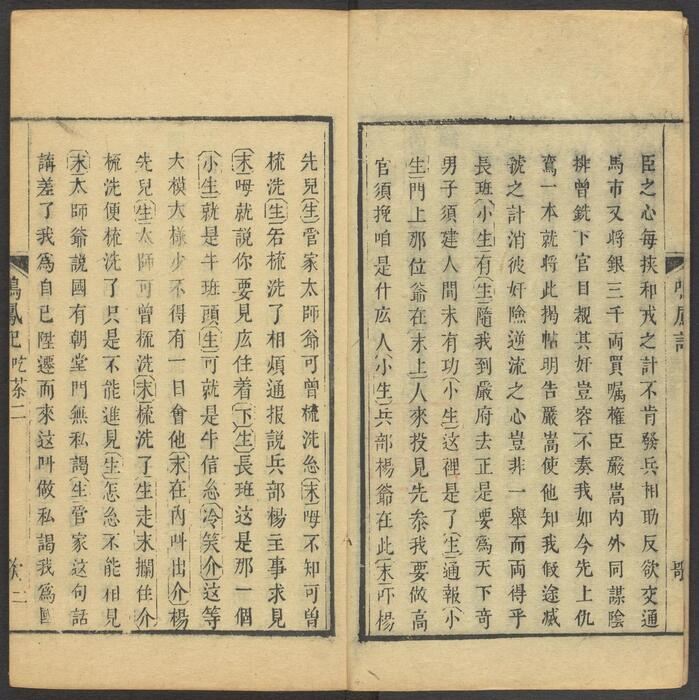 臣之心每挾和戎之計不肯發兵相助反欲交通
馬市又將銀三千両買嘱權臣嚴嵩内外同謀陰
排曾銑下官目覩其奸豈容不奏我如今先上仇
鸞一本就將此揭帖明告嚴嵩使他知我假途滅
虢之計消彼奸險逆流之心豈非一舉而両得乎
長班小生有生隨我到嚴府去正是要爲天下奇
男子須建人間未有功小生这裡是了生通報小
生門上那位爺在末上人來投見先叅我要做高
官須挽咱是什庅人小生兵部楊爺在此末吓楊
鳴鳳記
歌
先兒生管家太師爺可曾梳洗怂末吽不知可曾
梳洗生若梳洗了相煩通报説兵部楊主事求見
末吽就説你要見庅住着下生長班这是那一個
小生就是牛班頭生可就是牛信怂冷笑介这等
大模大樣少不得有一日會他末在內呌出介楊
先兒生太師可曾梳洗末梳洗了生走末攔住介
梳洗便梳洗了只是不能進見生怎怂不能相見
末太師爺説國有朝堂門無私謁生管家这句話
講差了我爲自已陞遷而來这呌做私謁我爲國
鳴鳳記 吃茶二
歌 二